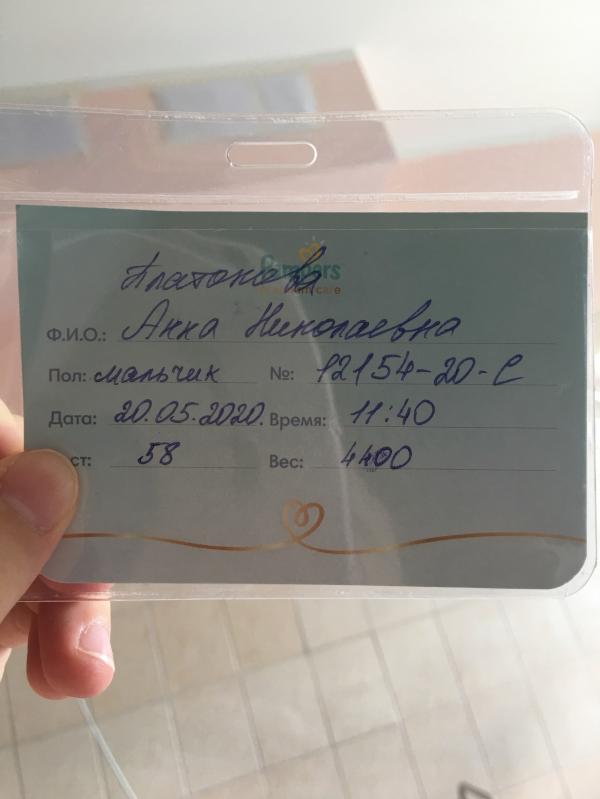 Pampers
Платонова
Ф.И.О.: Анна Николаевна
Пол: мальчик №: 12154-20-С
Дата: 20.05.2020. Время: 11:40
ст: 58 Вес: 4400